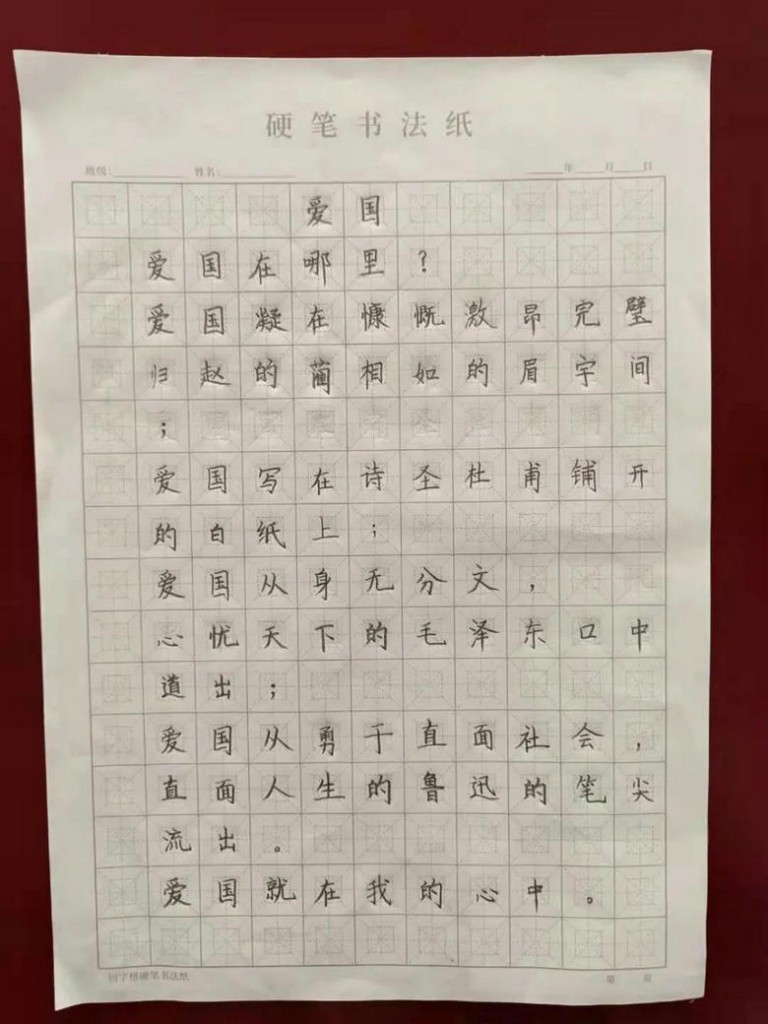 硬笔书法纸
班级: 姓名: 年 月 日
爱国
爱国在哪里?
爱国凝在慷慨激昂完璧
归赵的蔺相如的眉宇间
;
爱国写在诗圣杜甫铺开
的白纸上;
爱国从身无分文,
心忧天下的毛泽东口中
道出;
爱国从勇于直面社会,
直面人生的鲁迅的笔尖
流出。
爱国就在我的心中。
字格硬笔书法纸
第 页